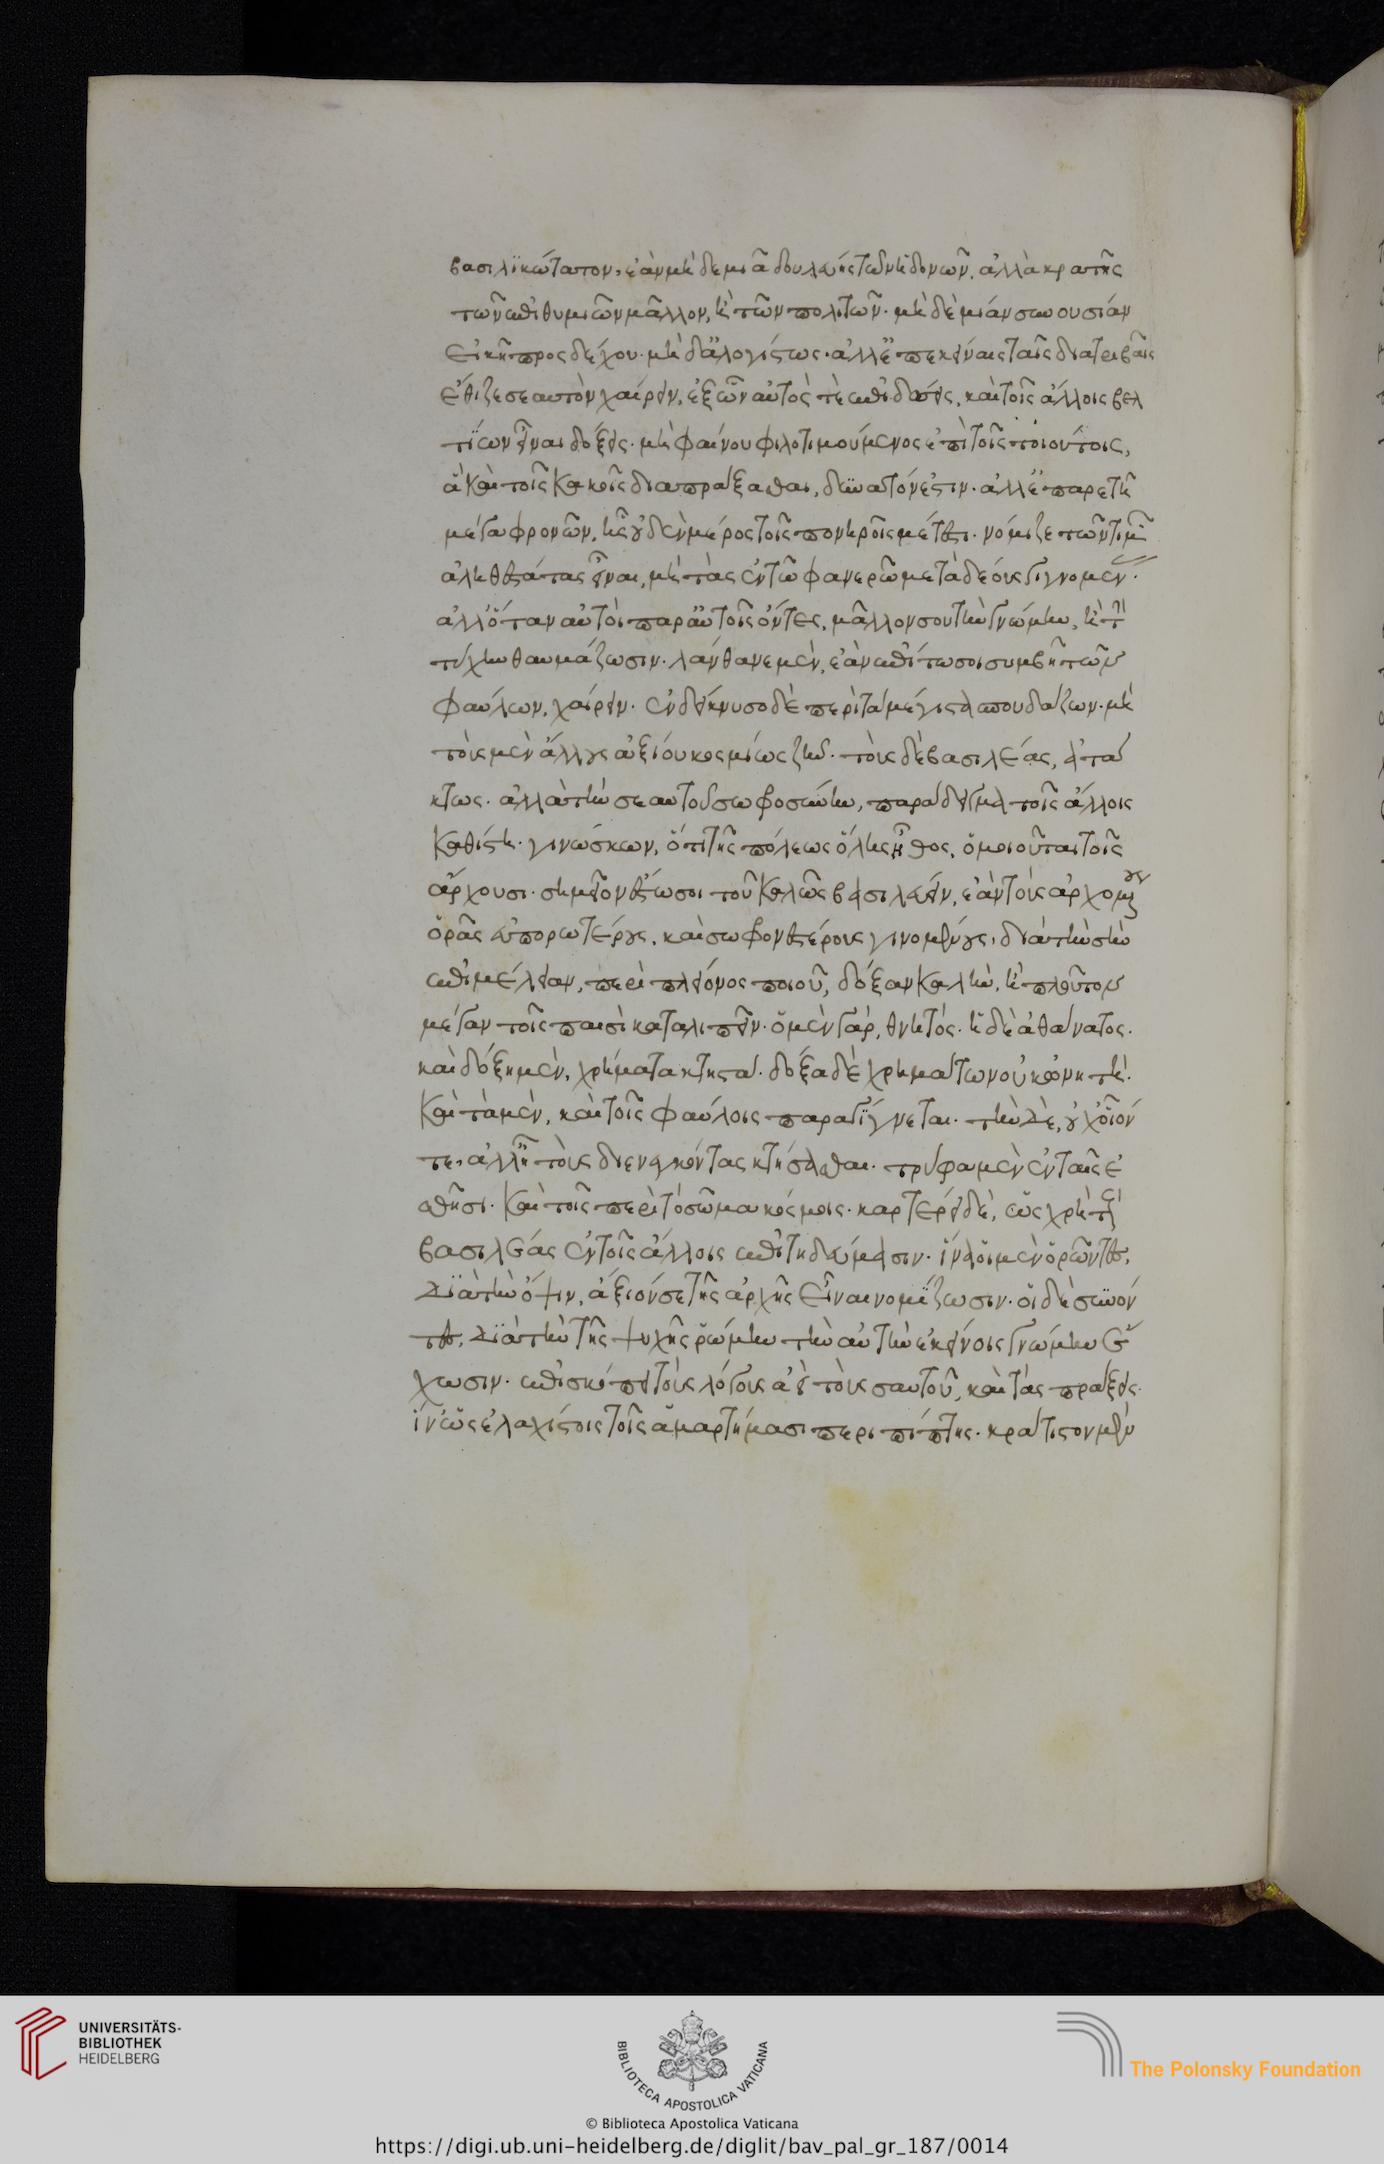 βασιλϊκώτατον, ἐὰν μὴ δεμιᾶ δουλεύῃς τῶν ἡδονῶν, ἀλλὰ κρατῆς
τῶν ἐπιθυμιῶν μᾶλλον, ἢ τῶν πολιτῶν· μὴ δὲ μιάν συνουσίαν
εἰκῆ προσδέχου· μὴ δ' ἀλογίστως· ἀλλ' ἐπ' ἐκείναις ταῖς διατριβαῖς
ἔθιζε σεαυτὸν χαίρειν, ἐξ ὧν αὐτός τε ἐπιδώσεις, καὶ τοῖς ἄλλοις βελ
τίων εἶναι δόξεις· μὴ φαίνου φιλοτιμούμενος ἐπὶ τοῖς τοιούτοις,
ἃ καὶ τοῖς κακοῖς διαπράξασθαι, δυνατόν ἐστιν· ἀλλ' ἐπ' ἀρετῆ
μέγα φρονῶν, ἧς οὐδὲν μέρος τοῖς πονηροῖς μέτεστι· νόμιζε τῶν τιμῶν
ἀληθεστάτας εἶναι, μὴ τὰς ἐν τῶ φανερῶ μετὰ δέους γιγνομέν·
ἀλλ' ὅταν αὐτοὶ παρ' αὑτοῖς ὄντες, μᾶλλον σου τὴν γνώμην, ἢ τὴν
τύχην θαυμάζωσιν· λάνθανε μὲν, ἐὰν ἐπί τω σοι συμβῆ τῶν
φαύλων, χαίρειν· ἐνδείκνυσο δὲ περὶ τὰ μέγιστα σπουδάζων· μὴ
τοὺς μὲν ἄλλους ἀξίου κοσμίως ζῆν· τοὺς δὲ βασιλέας, ἀτά
κτως· ἀλλὰ τὴν σεαυτοῦ σωφροσύνην, παράδειγμα τοῖς ἄλλοις
καθίστη· γινώσκων, ὅτι τῆς πόλεως ὅλης ἦθος, ὁμοιοῦται τοῖς
ἄρχουσι· σημεῖον ἔστω σοι τοῦ καλῶς βασιλεύειν, ἐὰν τοὺς ἀρχομένους
ὁρᾶς εὐπορωτέρους, καὶ σωφρονεστέρους γινομένους, διὰ τὴν σὴν
ἐπιμέλειαν, περὶ πλείονος ποιοῦ, δόξαν καλὴν, ἢ πλοῦτον
μέγαν τοῖς παισὶ καταλιπεῖν· ὁ μὲν γάρ, θνητός· ἡ δὲ ἀθάνατος·
καὶ δόξη μὲν, χρήματα κτητά· δόξα δὲ χρημάτων οὐκ ὠνητή·
καὶ τὰ μὲν, καὶ τοῖς φαύλοις παραγίγνεται· τὴν δὲ, οὐχ οἷόν
τε, ἀλλ' ἢ τοὺς διενεγκόντας κτήσασθαι· τρύφα μὲν ἐν ταῖς ἐ
σθῆσι· καὶ τοῖς περὶ τὸ σῶμα κόσμοις· καρτέρει δὲ, ὡς χρὴ τοὺς
βασιλέας ἐν τοῖς ἄλλοις ἐπιτηδεύμασιν· ἵνα οἱ μὲν ὁρῶντες,
διὰ τὴν ὄψιν, ἄξιόν σε τῆς ἀρχῆς εἶναι νομίζωσιν· οἱ δὲ συνόν
τες, διὰ τὴν τῆς ψυχῆς ῥώμην τὴν αὐτὴν ἐκείνοις γνώμην ἔ
χωσιν· ἐπισκόπει τοὺς λόγους ἀεὶ τοὺς σαυτοῦ, καὶ τὰς πράξεις·
ἵν' ὡς ἐλαχίστοις τοῖς ἁμαρτήμασι περιπίπτης· κράτιστον μὲν
UNIVERSITÄTS-
BIBLIOTHEK
HEIDELBERG
BIBLIOTECA APOSTOLICA VATICANA
The Polonsky Foundation
© Biblioteca Apostolica Vaticana
https://digi.ub.uni-heidelberg.de/diglit/bav_pal_gr_187/0014